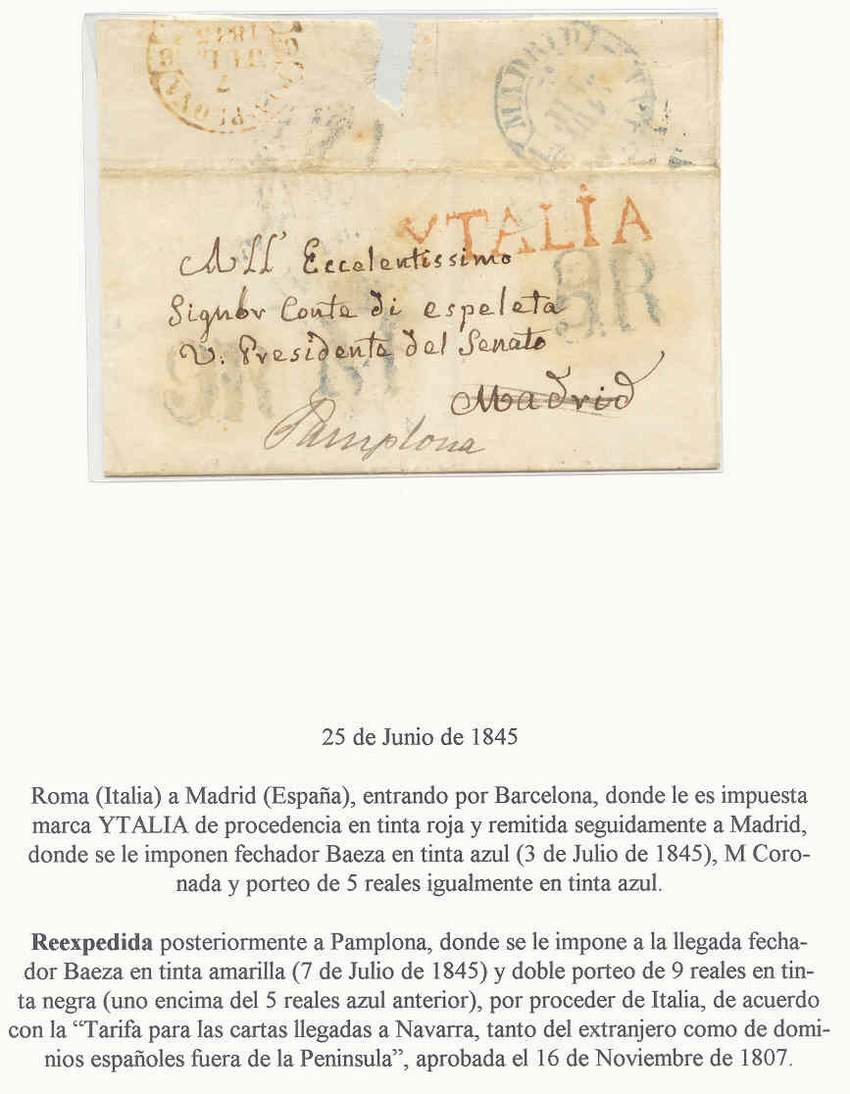 MADRID
YTALIA
All' Eccelentissimo
9R
Signor Conte di espeleta
V. Presidente del Senato
9R M
Madrid
Pamplona
25 de Junio de 1845
Roma (Italia) a Madrid (España), entrando por Barcelona, donde le es impuesta
marca YTALIA de procedencia en tinta roja y remitida seguidamente a Madrid,
donde se le imponen fechador Baeza en tinta azul (3 de Julio de 1845), M Coro-
nada y porteo de 5 reales igualmente en tinta azul.
Reexpedida posteriormente a Pamplona, donde se le impone a la llegada fecha-
dor Baeza en tinta amarilla (7 de Julio de 1845) y doble porteo de 9 reales en tin-
ta negra (uno encima del 5 reales azul anterior), por proceder de Italia, de acuerdo
con la “Tarifa para las cartas llegadas a Navarra, tanto del extranjero como de domi-
nios españoles fuera de la Peninsula”, aprobada el 16 de Noviembre de 1807.